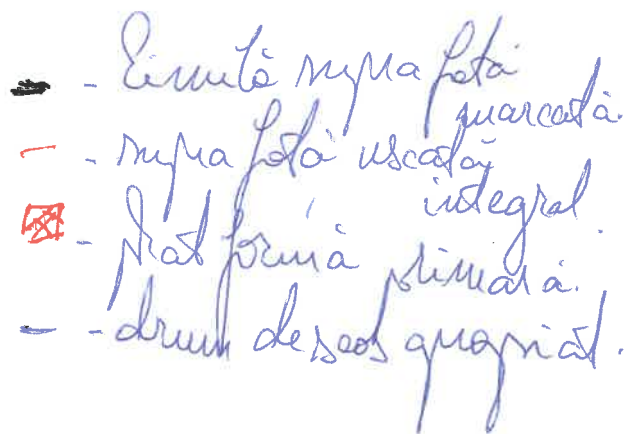 - Limită suprafată
marcată.
- suprafată uscată
integral.
- Platformă primară.
- drum de scos apropiat.